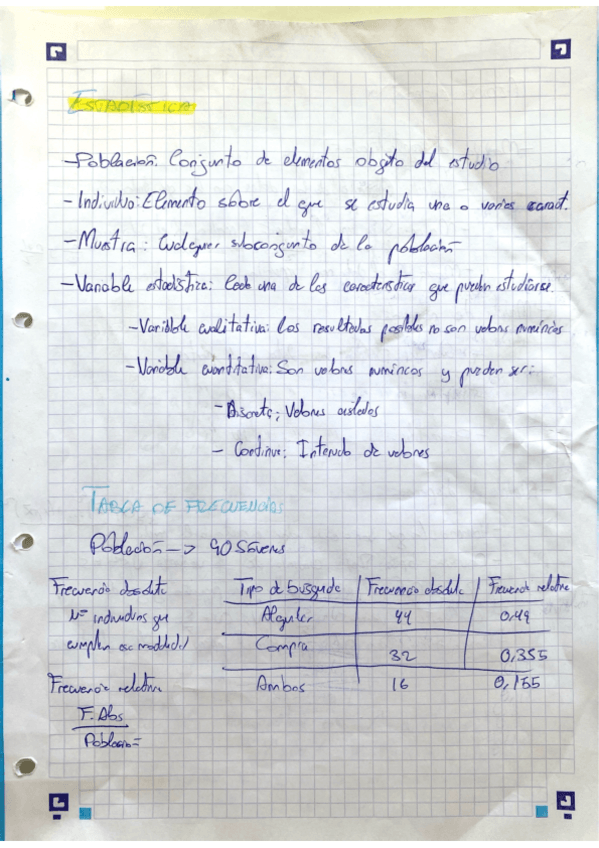 ESTADÍSTICA
-Población: Conjunto de elementos objeto del estudio
- Individuo: Elemento sobre el que se estudia una o varias caract.
- Muestra: Cualquier subconjunto de la población
- Variable estadística: Cada una de las características que pueden estudiarse.
- Variable cualitativa: Los resultados posibles no son valores numéricos
- Variable cuantitativa: Son valores numéricos y pueden ser:
- Discreta: Valores aislados
- Continua: Intervalo de valores
TABLA DE FRECUENCIAS
Población -> 90 Jóvenes
Frecuencia absoluta
Nº individuos que
cumplen esa modalidad
Frecuencia relativa
F. Abs
Población
Tipo de búsqueda | Frecuencia absoluta | Frecuencia relativa
Alquiler | 44 | 0,49
Compra | 32 | 0,355
Ambos | 16 | 0,155